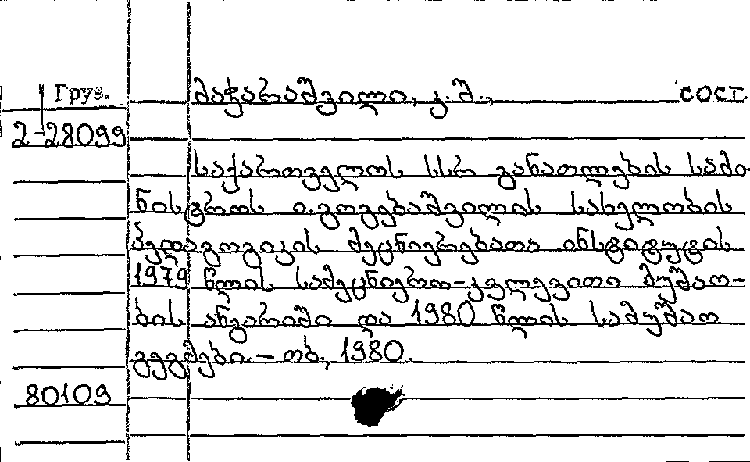 Груз. მაჭარაშვილი, კ.შ., сост.
2-28099
საქართველოს სსრ განათლების სამი-
ნისტროს ი.გოგებაშვილის სახელობის
პედაგოგიკის მეცნიერებათა ინსტიტუტის
1979 წლის სამეცნიერო-კვლევითი მუშაო-
ბის ანგარიში და 1980 წლის სამუშაო
გეგმები.- თბ., 1980.
80109